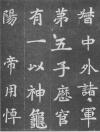 督中外諸軍
第五子歷官
有一以神龜
陽帝用悼